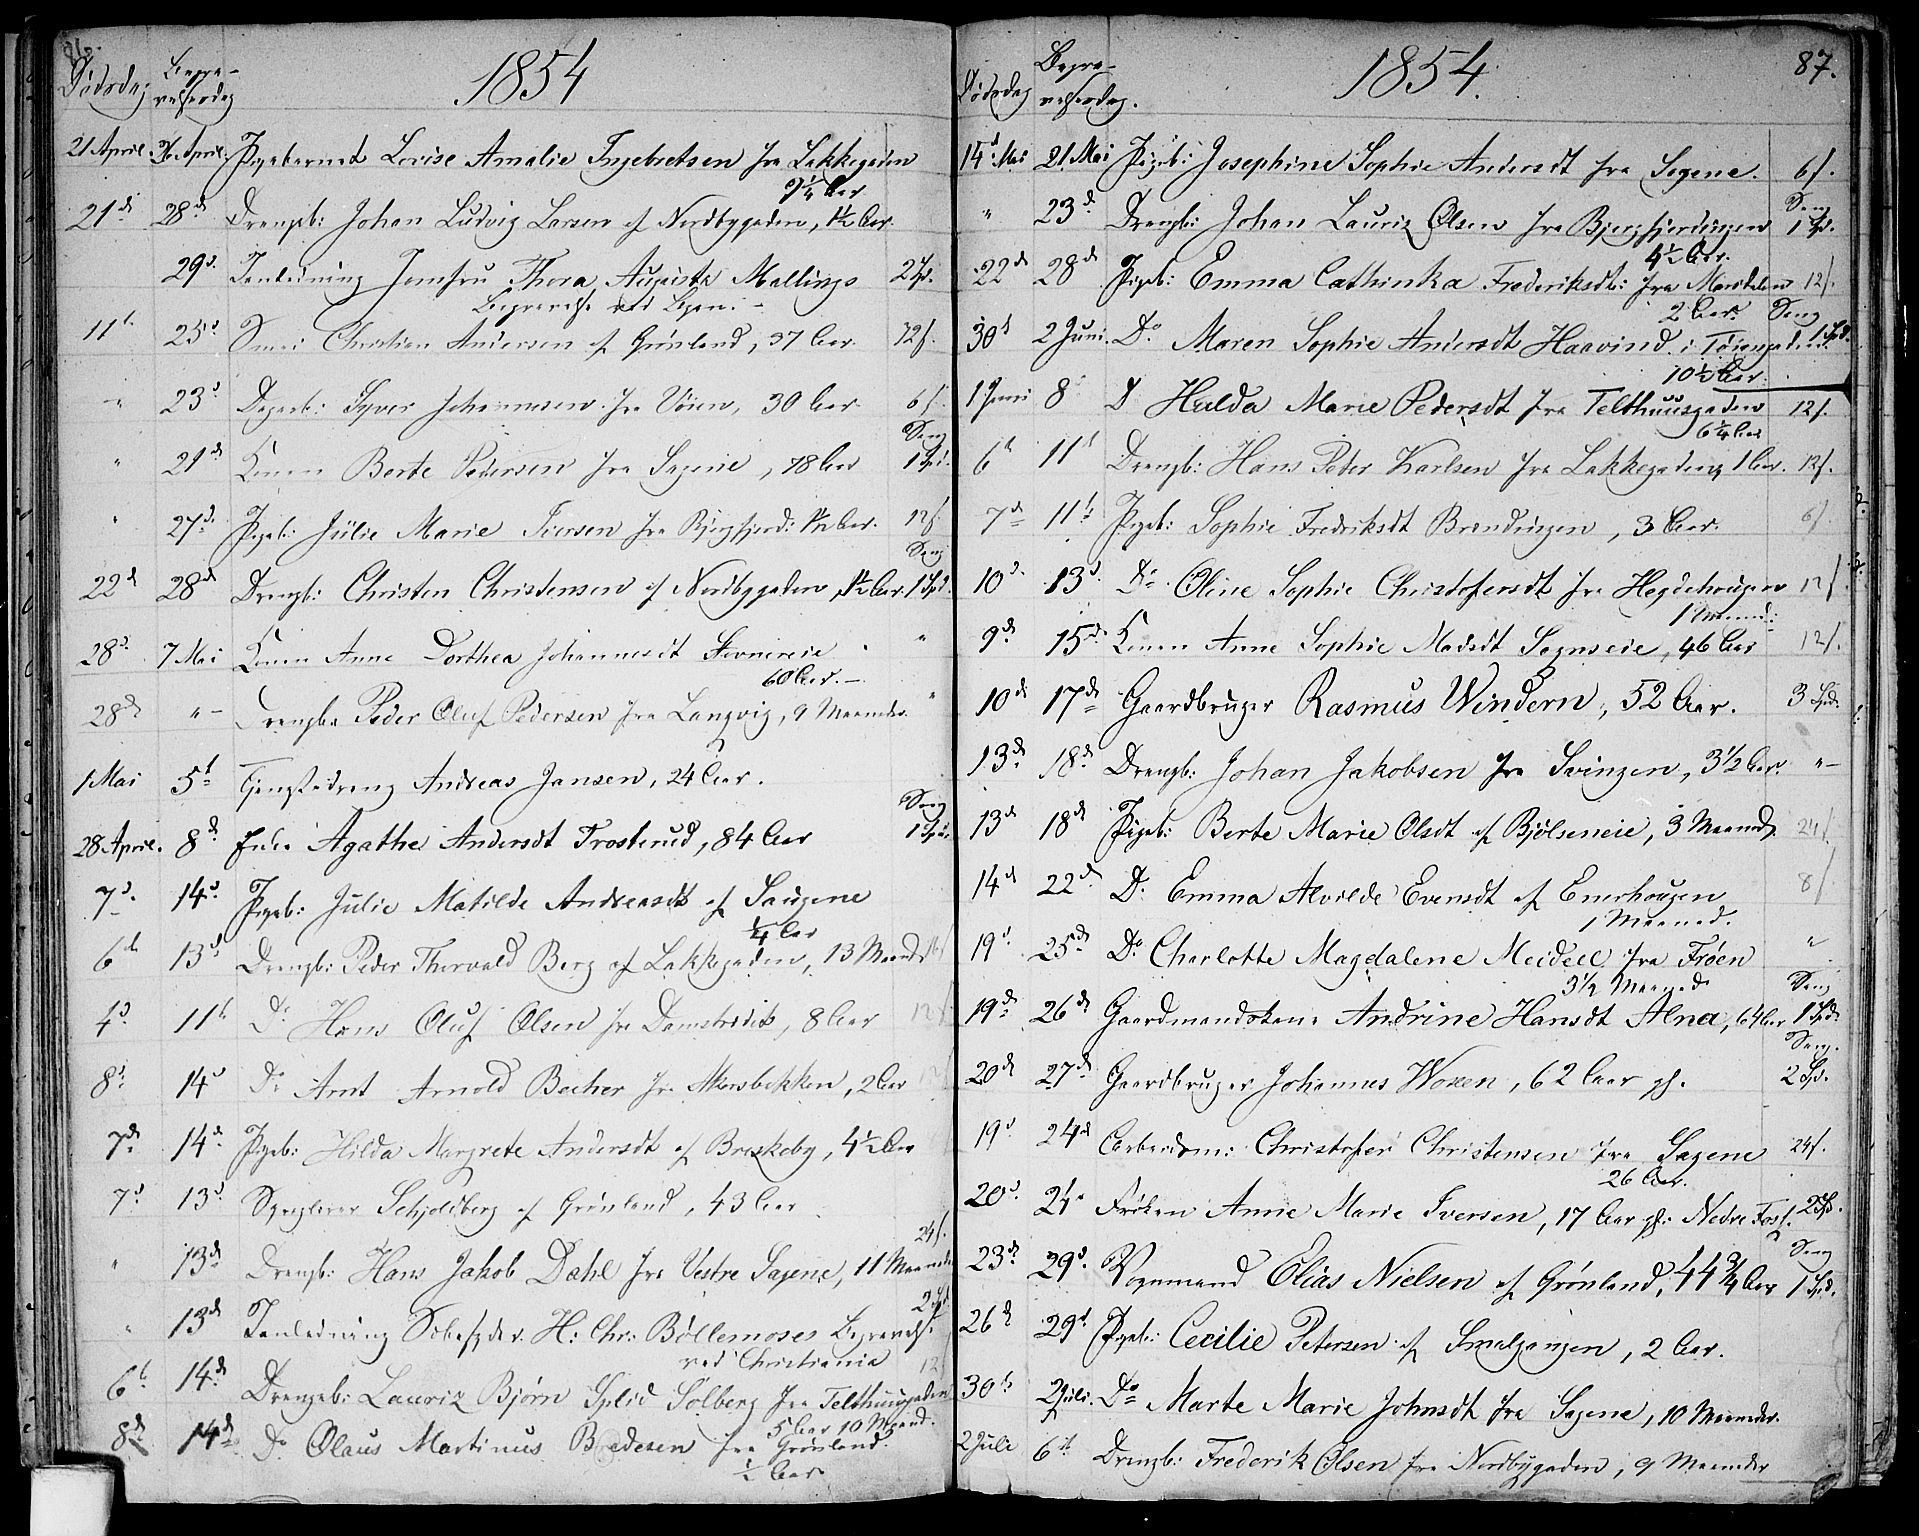 86.
Dødsdag Begra-
velsesdag
1854
21 April. 26 April. Pigebarnet Lovise Amalie Ingebretsen fra Lakkegaden
9¼ Aar
21de 28de Drengeb: Johan Ludvig Larsen af Nordbygaden, 1½ Aar.
29d. Jomfru Thora Augusta Mallings 2 Spd.
Begravelse ved Byen. -
11t 25d. Christian Andersen af Grønland, 37 Aar. 72 s.
" 23d Syver Johannesen fra Vøien, 30 Aar. 6 s.
Seng
" 21de Konen Berte Pedersen fra Sagene, 78 Aar 1 Spd.
" 27d. Pigeb: Julie Marie Iversen fra Bjergfjerd: 1½ Aar. 12 s.
Seng
22d 28de Drengb: Christen Christensen af Nordbygaden, 1½ Aar. 1 Spd.
28d. 7 Mai Konen Anne Dorthea Johannesdt Stovnereie "
60 Aar. -
28de " - Drengba Peder Oluf Pedersen fra Langvig, 9 Maaneder. "
1 Mai 5t Tjenestedreng Andreas Jansen, 24 Aar.
Seng
28 April. 8de Enke Agathe Andersdt Trosterud, 84 Aar 1 Spd.
7d. 14d. Pigeb: Julie Matilde Andreasdt af Saugene
¼ Aar
6te 13d Drengb: Peder Thorvald Berg af Lakkegaden, 13 Maaned
4d. 11te Do Hans Oluf Olsen fra Damstrædet, 8 Aar 12 s.
8d. 14d Do Arnt Arnold Becher fra Akersbakken, 2 Aar
7de 14d. Pigeb: Hilda Margrete Andersdt af Breskeby, 4½ Aar
7d 13d. Schjoldberg af Grønland, 43 Aar
24 s.
" 13de Drengb: Hans Jakob Dahl fra Vestre Sagene, 11 Maaneder
2 Spd
" 13de H: Chr: Bøllemoses Begravelse
ved Christiania 12 s
6te 14de Drengeb: Lauriz Bjørn Splid Solberg fra Telthuusgaden
5 Aar 10 Maaned.
8de 14de Do Olaus Martinus Bredesen fra Grønland.
½ Aar

87.
Dødsdag Begra-
velsesdag.
1854.
14d Mai 21 Mai Pigeb: Josephine Sophie Andersdt fra Sagene. 6 s.
Seng
" 23d. Drengb: Johan Lauriz Olsen fra Bjergfjerdingen 1 Spd.
4½ Aar.
22de 28de Pigeb: Emma Cathinka Frederiksdt: fra Maridalen 12 s.
2 Aar. Seng
30t 2 Juni. Do Maren Sophie Andersdt Haavind i Tøiengaden 1 Spd.
10½ Aar.
1 Juni 8 D Hulda Marie Pedersdt fra Telthuusgaden 12 s.
6¼ Aar
6te 11t Drengb: Hans Peder Karlsen fra Lakkegaden, 1 Aar. 12 s.
7de 11te Pigeb: Sophie Fredriksdt Brendingen, 3 Aar. 6 s
10d. 13d. Do Oline Sophie Christofersdt fra Hegdehougen 12 s.
1 Maaned:
9de 15de Konen Anne Sophie Madsdt Sognseie, 46 Aar 12 s.
10de 17de Gaardbruger Rasmus Windern, 52 Aar. 3 Spd.
13de 18de Drengb: Johan Jakobsen fra Svingen, 3½ Aar. " -
13de 18de Pigeb: Berte Marie Olsdt af Bjølseneie, 3 Maaned 24 s.
14de 22de Do Emma Alvilde Evensdt af Enerhougen 8 s
1 Maaned.
19d. 25de Do Charlotte Magdalene Meidell fra Frøen "
3½ Maaned Seng
19de 26de Gaardmandskone Andrine Hansdt Alna, 64 Aar 1 Spd.
Seng.
20de 27de Gaardbruger Johannes Woxen, 62 Aar gl. 2 Spd.
19d 24de Arbeidsm: Christofer Christensen fra Sagene 24 s.
26 Aar.
20d. 24 Frøken Anne Marie Iversen, 17 Aar gl: Nedre Foss. 2 Spd.
Seng
23de 29d. Vognmand Elias Nielsen af Grønland, 44¾ Aar 1 Spd.
26de 29d. Pigeb: Cecilie Petersen af Smalgangen, 2 Aar.
30te 2 Juli. Do Marte Marie Johnsdt fra Sagene, 10 Maaneder.
2 Juli 6te Drengb: Frederik Olsen fra Nordbygaden, 9 Maaneder